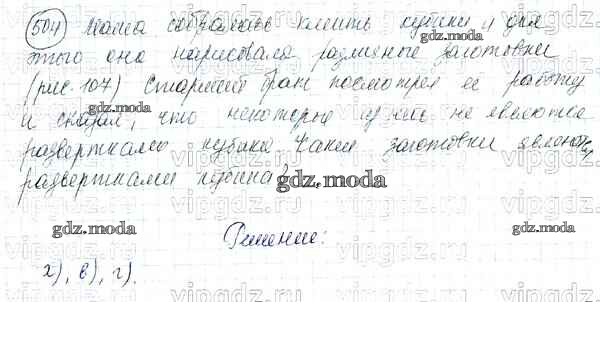 504 Маша собралась клеить кубики, и для
этого она нарисовала различные заготовки
(рис. 107) Старший брат посмотрел её работу
и сказал, что некоторые из них не являются
развертками кубика. Какие заготовки являются
развертками кубика?
gdz.moda
Решение:
а), в), г).